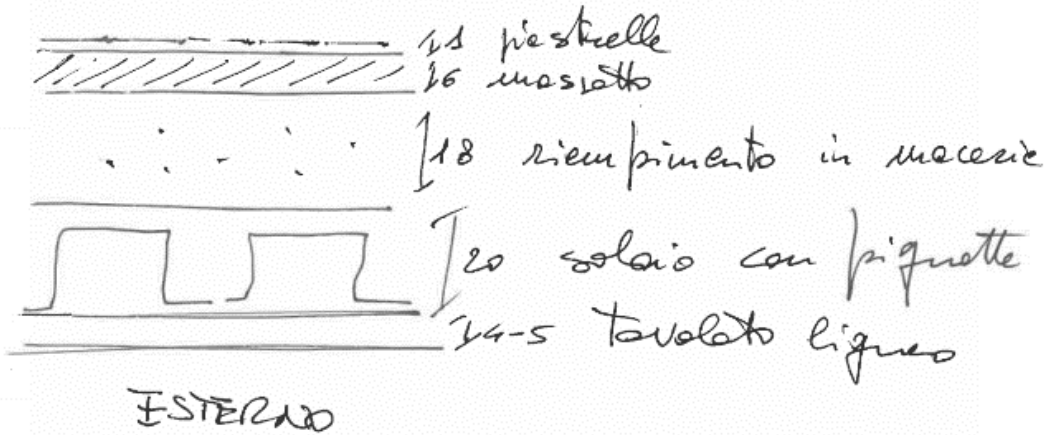 1 piastrelle
6 massetto
18 riempimento in macerie
20 solaio con pignatte
4-5 tavolato ligneo
ESTERNO